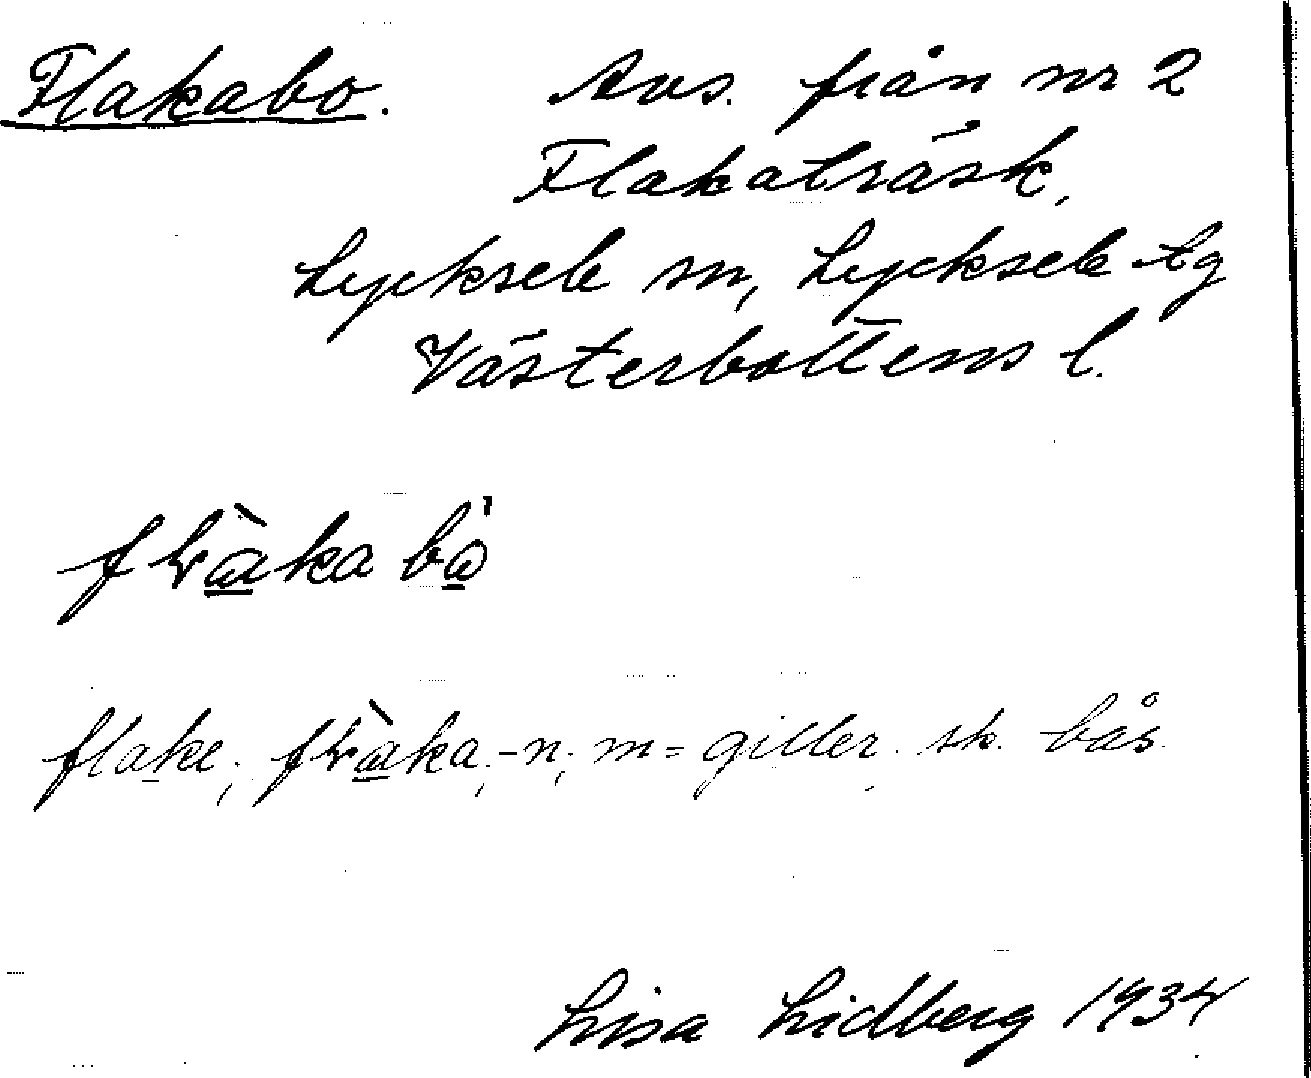 Flakabo. Avs. från nr 2
Flakaträsk,
Lycksele sn, Lycksele tg
Västerbottens l.
flake; -n; m = giller. sk. bås
Lisa Lidberg 1934